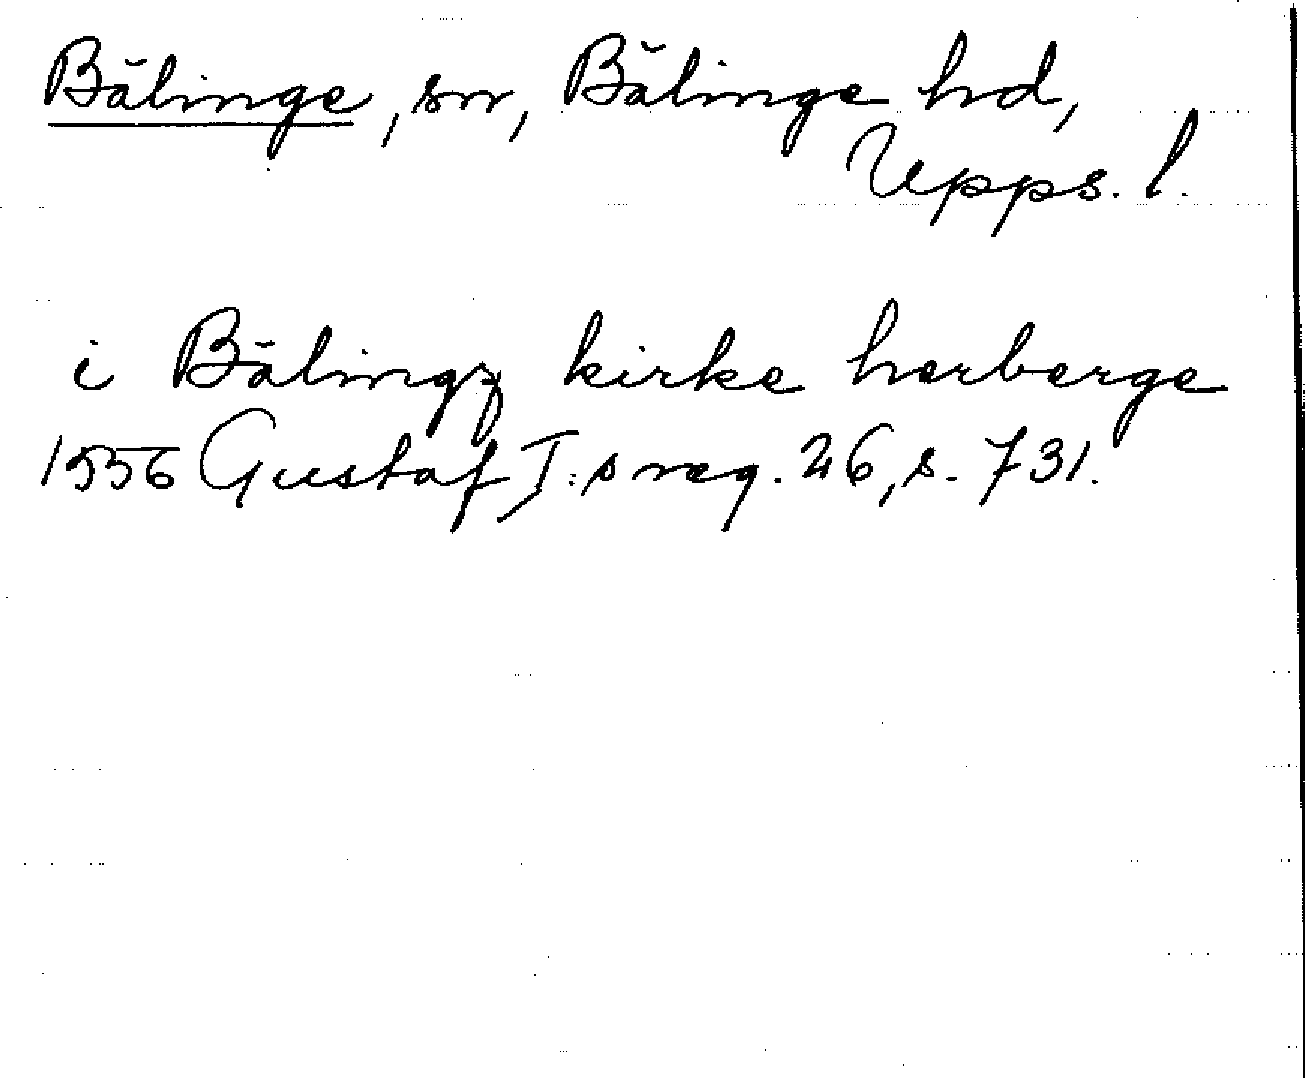 Bälinge, sn, Bälinge hd,
Upps. l.
i Bälingz kirke herberge
1556 Gustaf I:s reg. 26, s. 731.